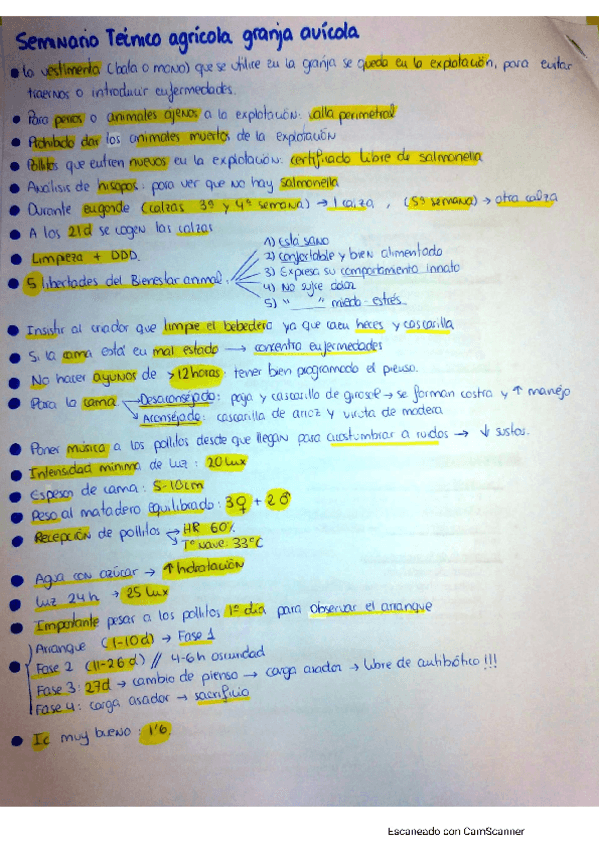 Seminario Técnico agrícola granja avícola
• La vestimenta (bata o mono) que se utilice en la granja se queda en la explotación, para evitar
traernos o introducir enfermedades.
• Para perros o animales ajenos a la explotación: valla perimetral
• Prohibido dar los animales muertos de la explotación
• Pollitos que entren nuevos en la explotación: certificado libre de salmonella
• Análisis de hisopos: para ver que no hay salmonella
• Durante engorde (calzas 3ª y 4ª semana) → 1 calza, (5ª semana) → otra calza
• A los 21d se cogen las calzas
• Limpieza + DDD.
• 5 libertades del Bienestar animal.
1) Está sano
2) confortable y bien alimentado
3) Expresa su comportamiento innato
4) No sufre dolor
5) " " miedo - estrés.
• Insistir al criador que limpie el bebedero ya que caen heces y cascarilla
• Si la cama está en mal estado → concentra enfermedades
• No hacer ayunos de >12 horas: tener bien programado el pienso.
• Para la cama → Desaconsejado: paja y cascarillo de girasol → se forman costra y ↑ manejo
→ Aconsejado: cascarilla de arroz y viruta de madera
• Poner música a los pollitos desde que llegan para acostumbrar a ruidos → ↓ sustos.
• Intensidad mínima de luz: 20 lux
• Espesor de cama: 5-10cm
• Peso al matadero equilibrado: 3♀ + 2♂
• Recepción de pollitos → HR 60%
→ Tº nave: 33ºC
• Agua con azúcar → ↑ hidratación
• Luz 24h → 25 lux
• Importante pesar a los pollitos 1º día para observar el arranque
• Arranque (1-10d) → Fase 1
Fase 2 (11-26d) // 4-6h oscuridad
Fase 3: 27d → cambio de pienso → carga asador → libre de antibiótico!!!
Fase 4: carga asador → sacrificio
• Ic muy bueno: 1'6.
Escaneado con CamScanner